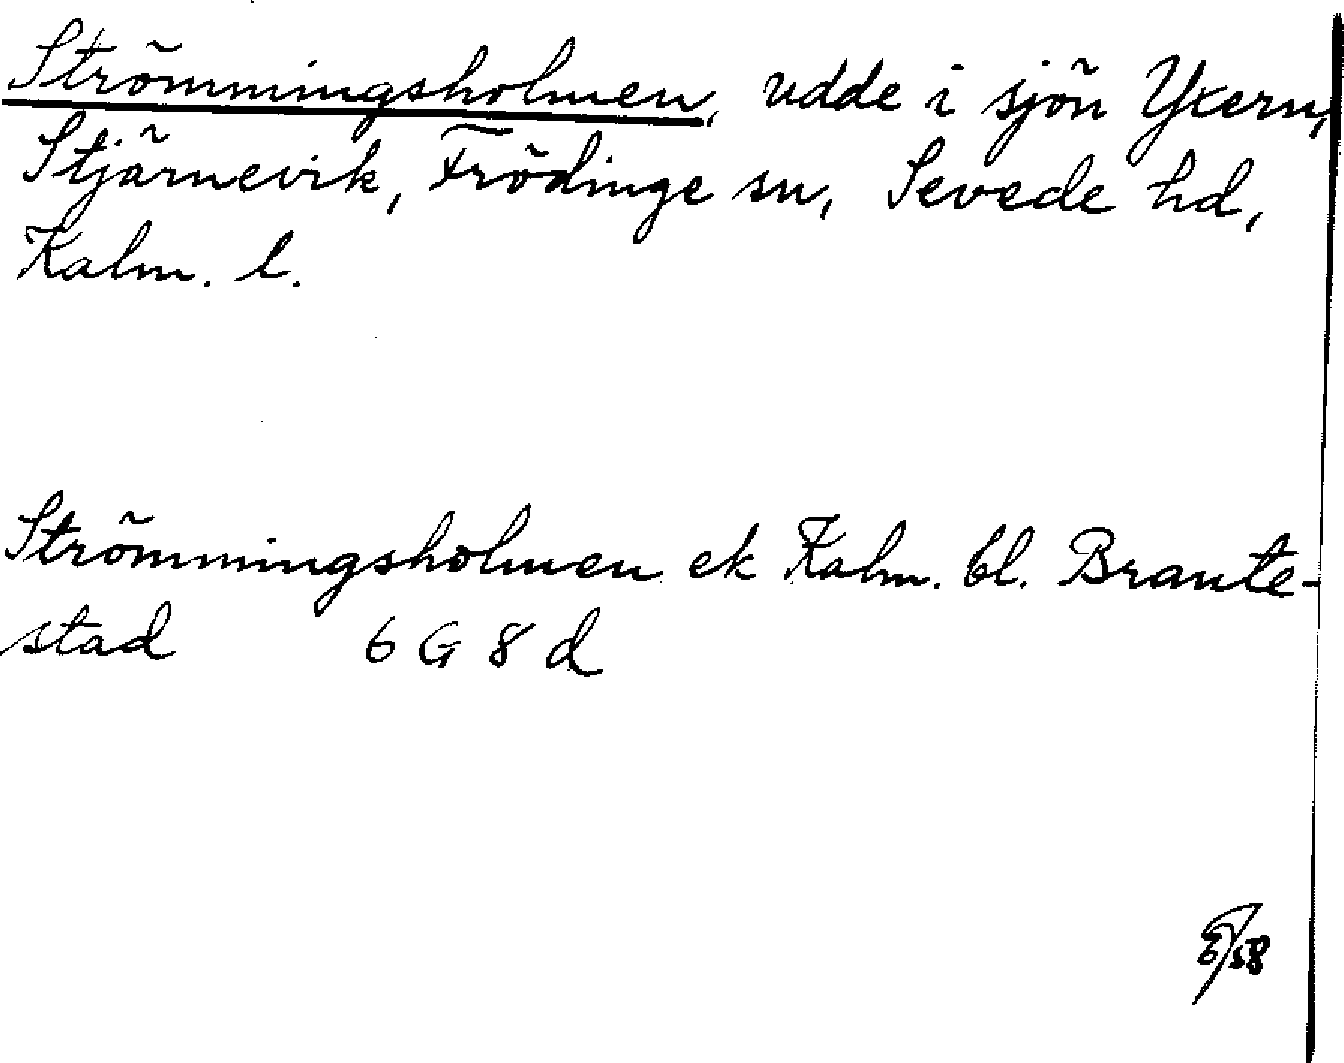 Strömmingsholmen, udde i sjön Yxern,
Stjärnevik, Frödinge sn, Sevede hd,
Kalm. l.
Strömmingsholmen ek Kalm. bl. Brante-
stad 6 G 8 d